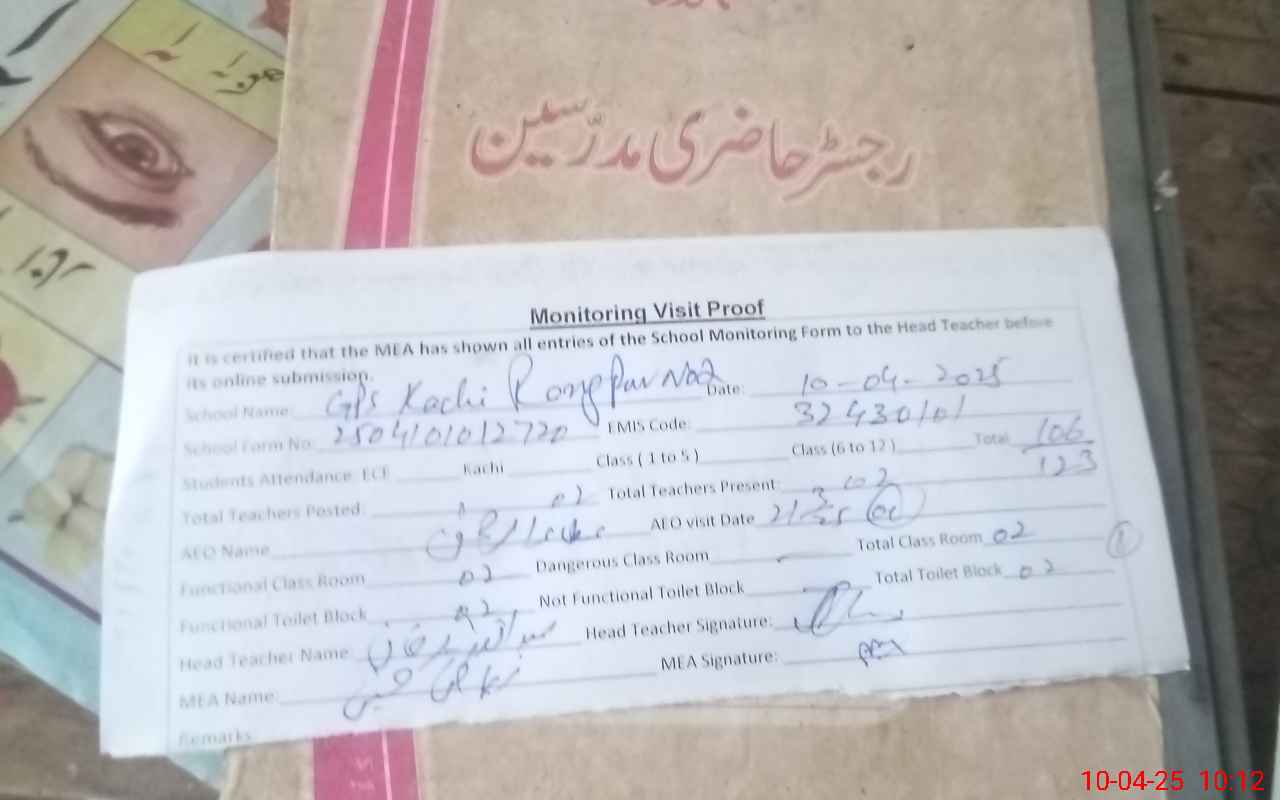 رجسٹر حاضری مدرّسین
Monitoring Visit Proof
It is certified that the MEA has shown all entries of the School Monitoring Form to the Head Teacher before
its online submission.
School Name: GPS Kachi Rongpur No2 Date: 10-04-2025
School Form No: 2504101012720 EMIS Code: 32430101
Students Attendance: ECE Kachi Class ( 1 to 5 ) Class (6 to 12 ) Total 106
123
Total Teachers Posted: 02 Total Teachers Present: 02
AEO Name AEO visit Date
Functional Class Room 02 Dangerous Class Room Total Class Room 02
Functional Toilet Block 02 Not Functional Toilet Block Total Toilet Block 02
Head Teacher Name: Head Teacher Signature:
MEA Name: MEA Signature:
Remarks:
10-04-25 10:12